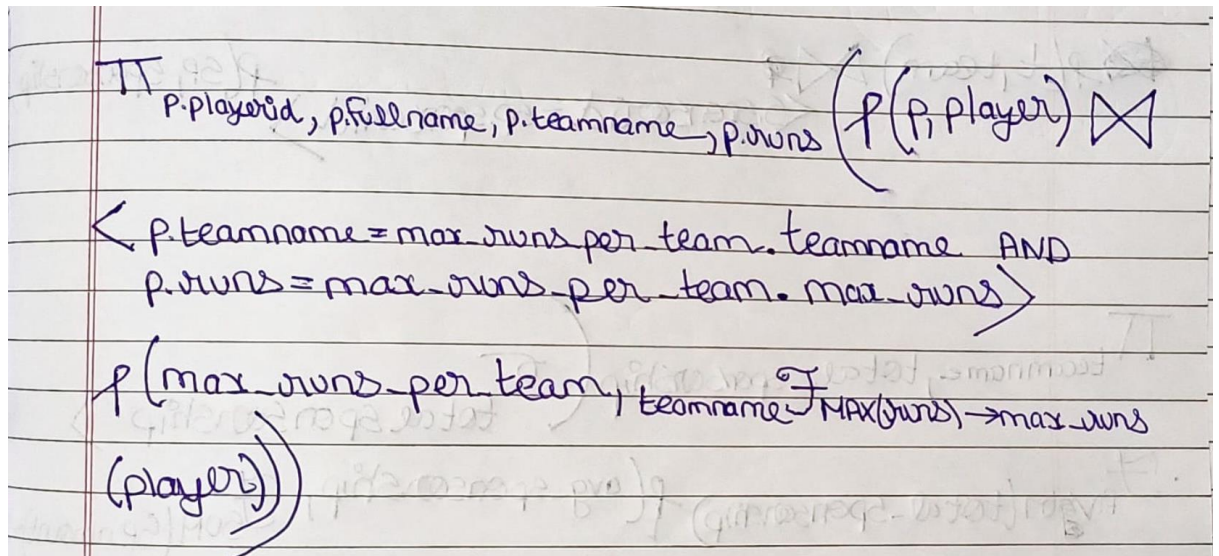 π p.playerid, p.fullname, p.teamname, p.runs (ρ(p, player) ⋈
< p.teamname = max_runs_per_team.teamname AND
p.runs = max_runs_per_team.max_runs >
ρ(max_runs_per_team, teamname ℱ MAX(runs) → max_runs
(player)))